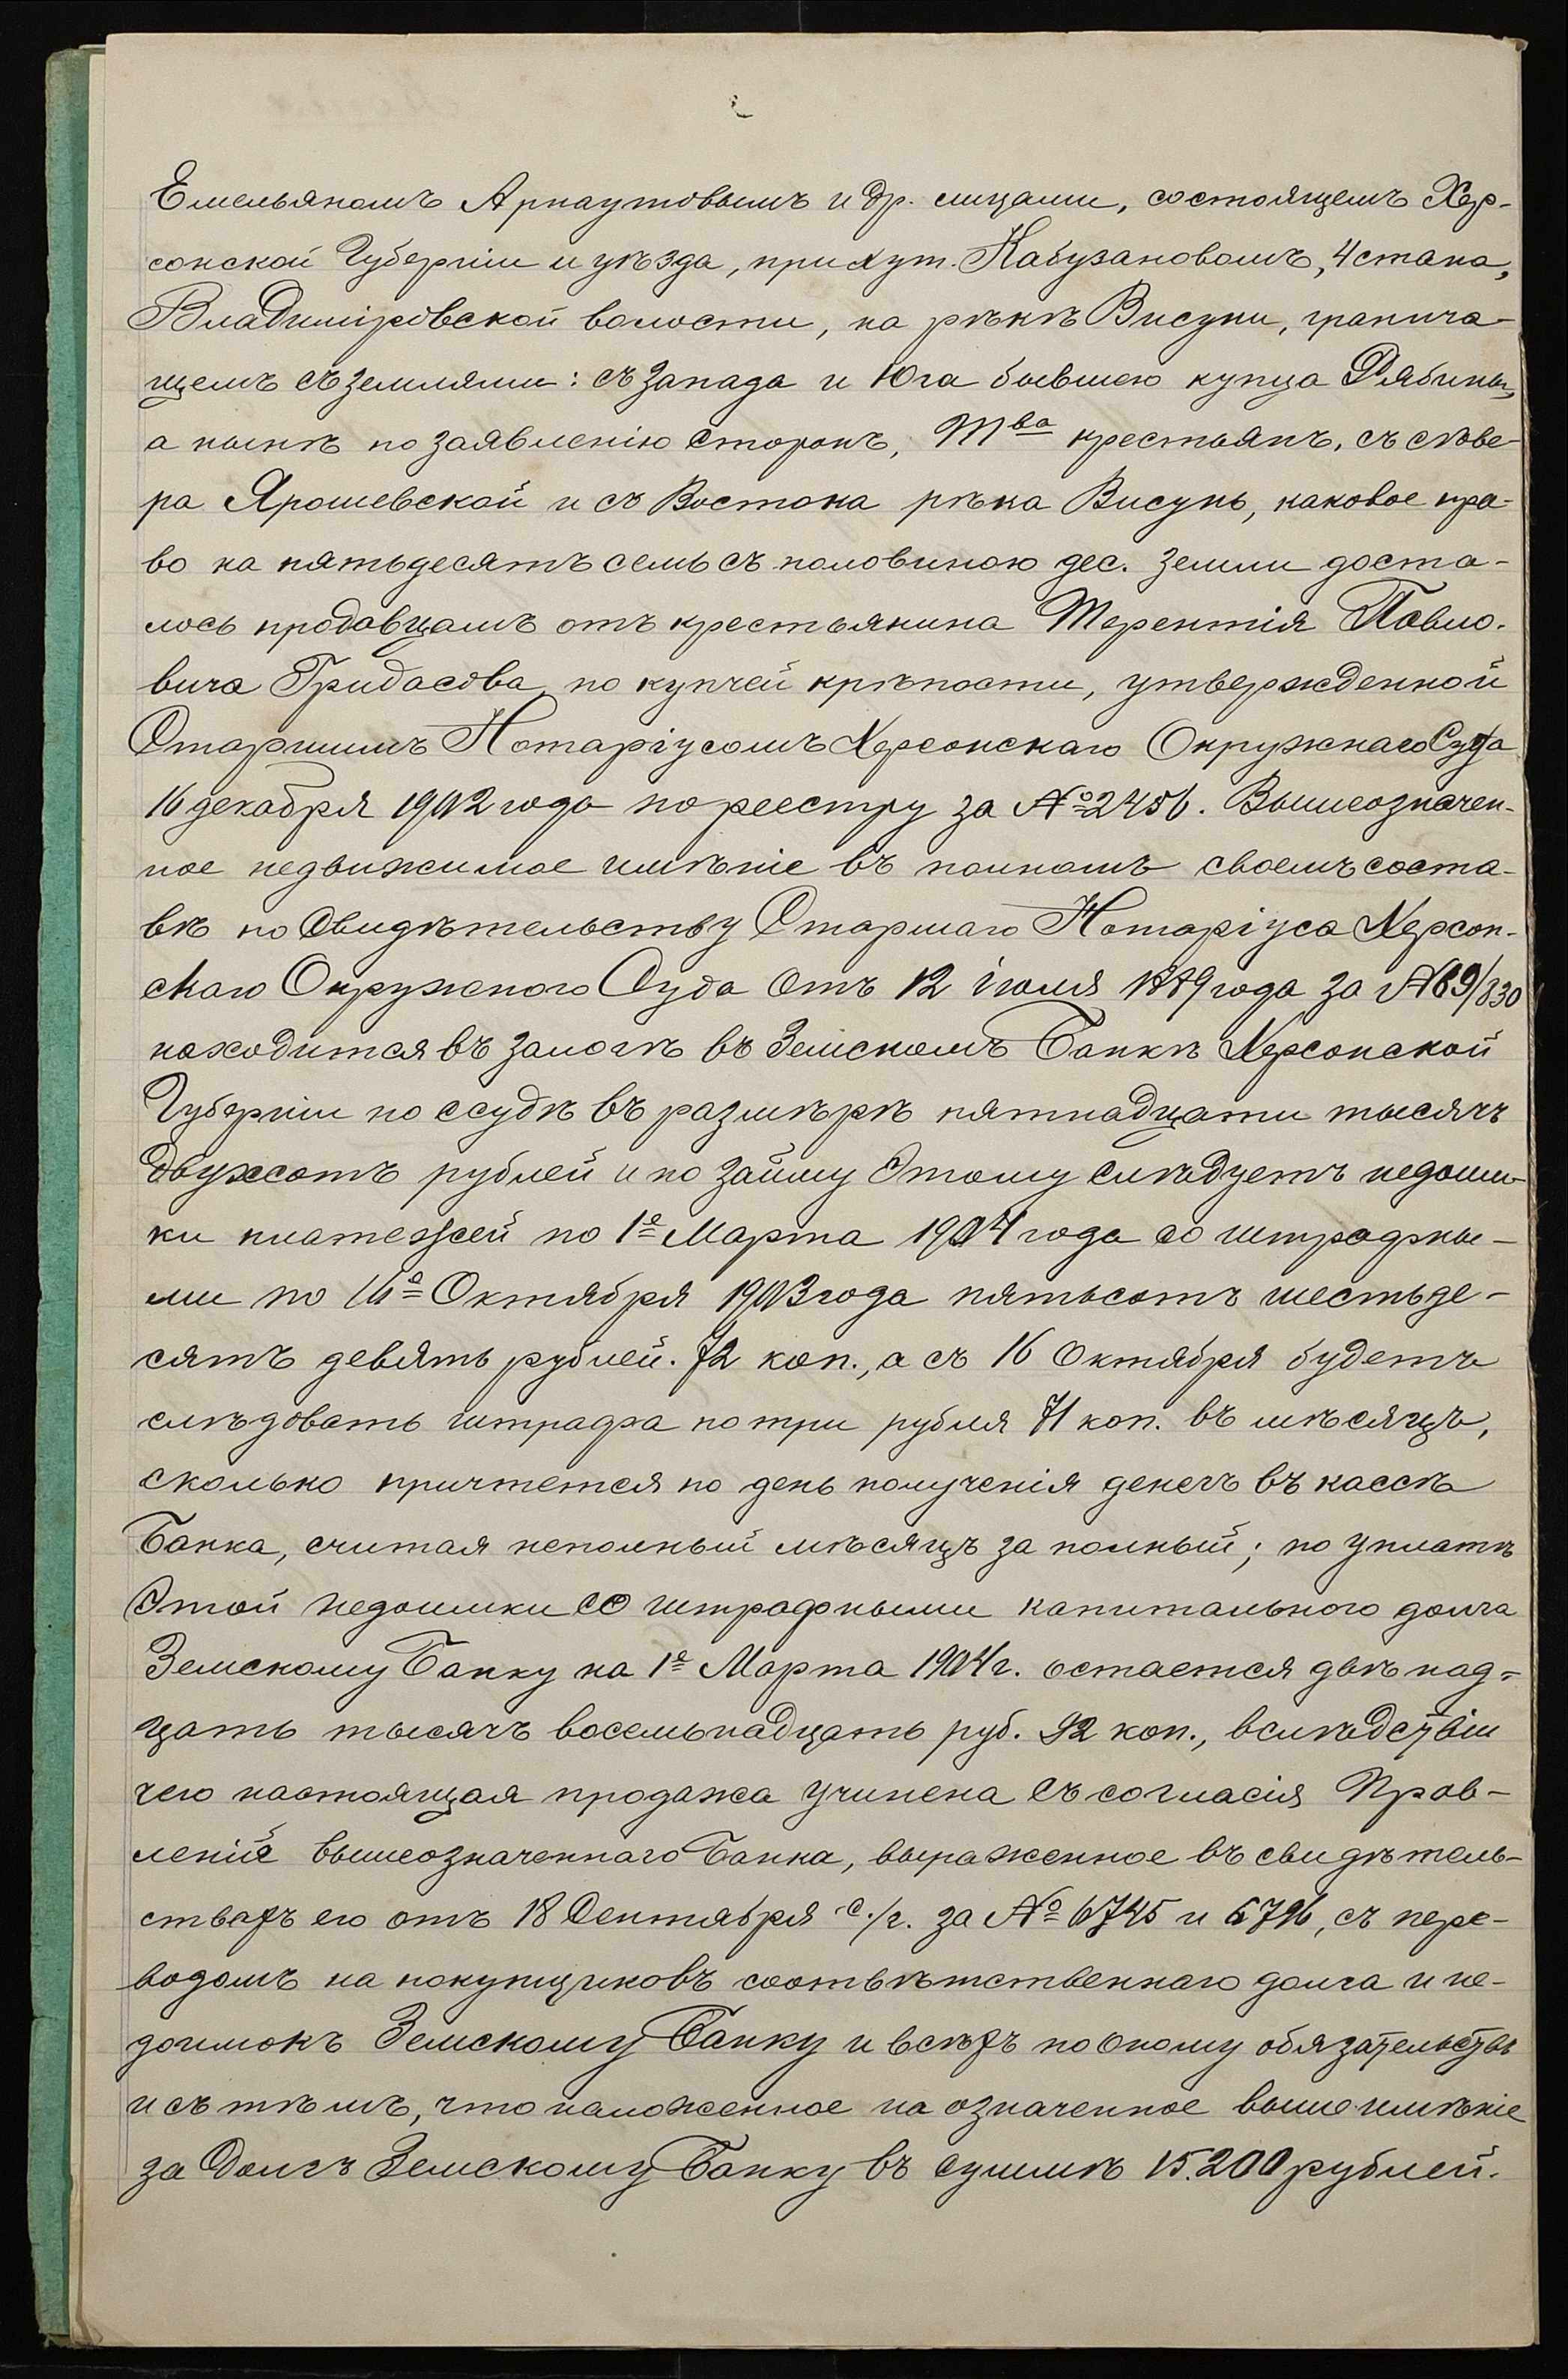 Емельяномъ Арнаутовымъ и др. лицами, состоящемъ Хер-
сонской Губерніи и уѣзда, при хут. Кабузановомъ, 4 стана,
Владиміровской волости, на рѣкѣ Висуни, гранича-
щемъ съ землями: съ запада и Юга бывшею купца Рябины,
а нынѣ по заявленію Сторонъ, Тва крестьянъ, съ сѣве-
ра Ярошевской и съ Востока рѣка Висунь, каковое пра-
во на пятьдесятъ семь съ половиною дес. земли доста-
лось продавцамъ отъ крестьянина Терентія Павло-
вича Гридасова, по купчей крѣпости, утвержденной
Старшимъ Нотаріусомъ Херсонскаго Окружнаго Суда
16 декабря 1902 года по реестру за № 2456. Вышеозначен-
ное недвижимое имѣніе въ полномъ своемъ соста-
вѣ по Свидѣтельству Старшаго Нотаріуса Херсон-
скаго Окружного Суда отъ 12 іюля 1889 года за № 69/830
находится въ залогѣ въ Земскомъ Банкѣ Херсонской
Губерніи по ссудѣ въ размѣрѣ пятнадцати тысячъ
двухсотъ рублей и по займу Этому слѣдуетъ недоим-
ки платежей по 1е Марта 1904 года со штрафны-
ми по 16е Октября 1903 года пятьсотъ шестьде-
сятъ девять рублей. 72 коп., а съ 16 Октября будетъ
слѣдовать штрафа по три рубля 71 коп. въ мѣсяцъ,
сколько причтется по день полученія денегъ въ кассѣ
Банка, считая неполный мѣсяцъ за полный; по уплатѣ
Этой недоимки со штрафными капитального долга
Земскому Банку на 1е Марта 1904 г. остается двѣнад-
цать тысячъ восемьнадцать руб. 92 коп., вслѣдствіи
чего настоящая продажа учинена съ согласія Прав-
леніе вышеозначеннаго Банка, выраженное въ свидѣтель-
ствахъ его отъ 18 Сентября с./г. за № 6745 и 6746, съ пере-
водомъ на покупщиковъ соотвѣтственнаго долга и не-
доимокъ Земскому Банку и всѣхъ по оному обязательствъ
и съ тѣмъ, что наложенное на означенное выше имѣніе
за Долгъ Земскому Банку въ суммѣ 15.200 рублей.